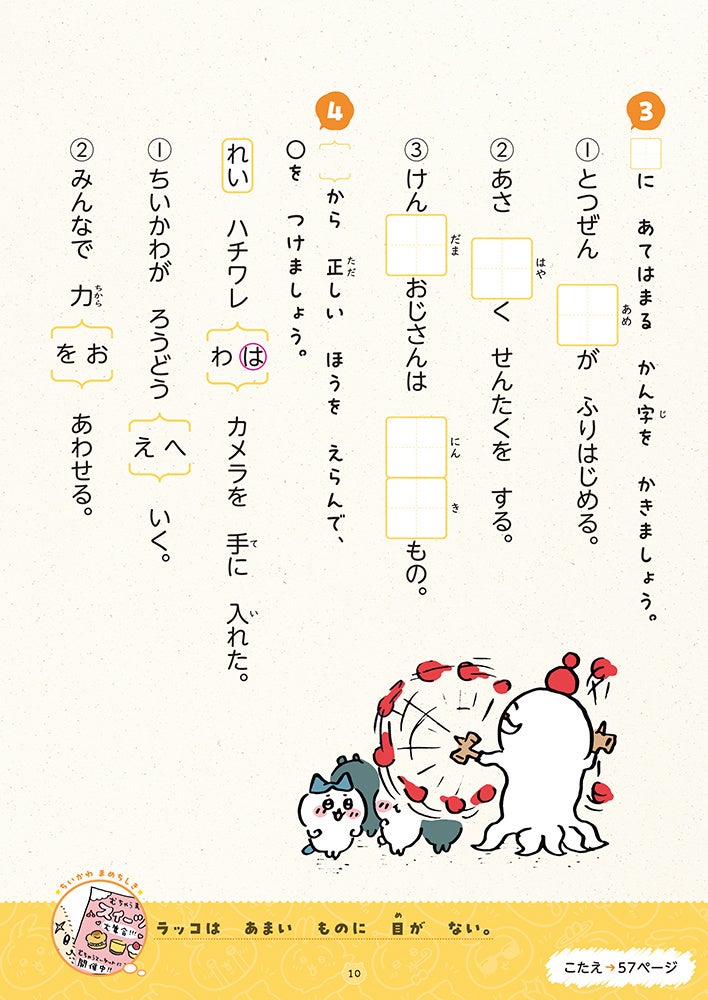 3
□に あてはまる かん字を かきましょう。
じ
① とつぜん □が ふりはじめる。
あめ
② あさ □く せんたくを する。
はや
③ けん□おじさんは □□もの。
だま
にん
き
4
｛ ｝から 正しい ほうを えらんで、
ただ
○を つけましょう。
れい ハチワレ｛は わ｝カメラを 手に 入れた。
て
い
① ちいかわが ろうどう｛へ え｝いく。
② みんなで 力｛お を｝あわせる。
ちから
ちいかわ まめちしき
むちゃうま
スイーツ
大集合!!!
むちゃうマーケットにて
開催中!!
ラッコは あまい ものに 目が ない。
め
10
こたえ→57ページ